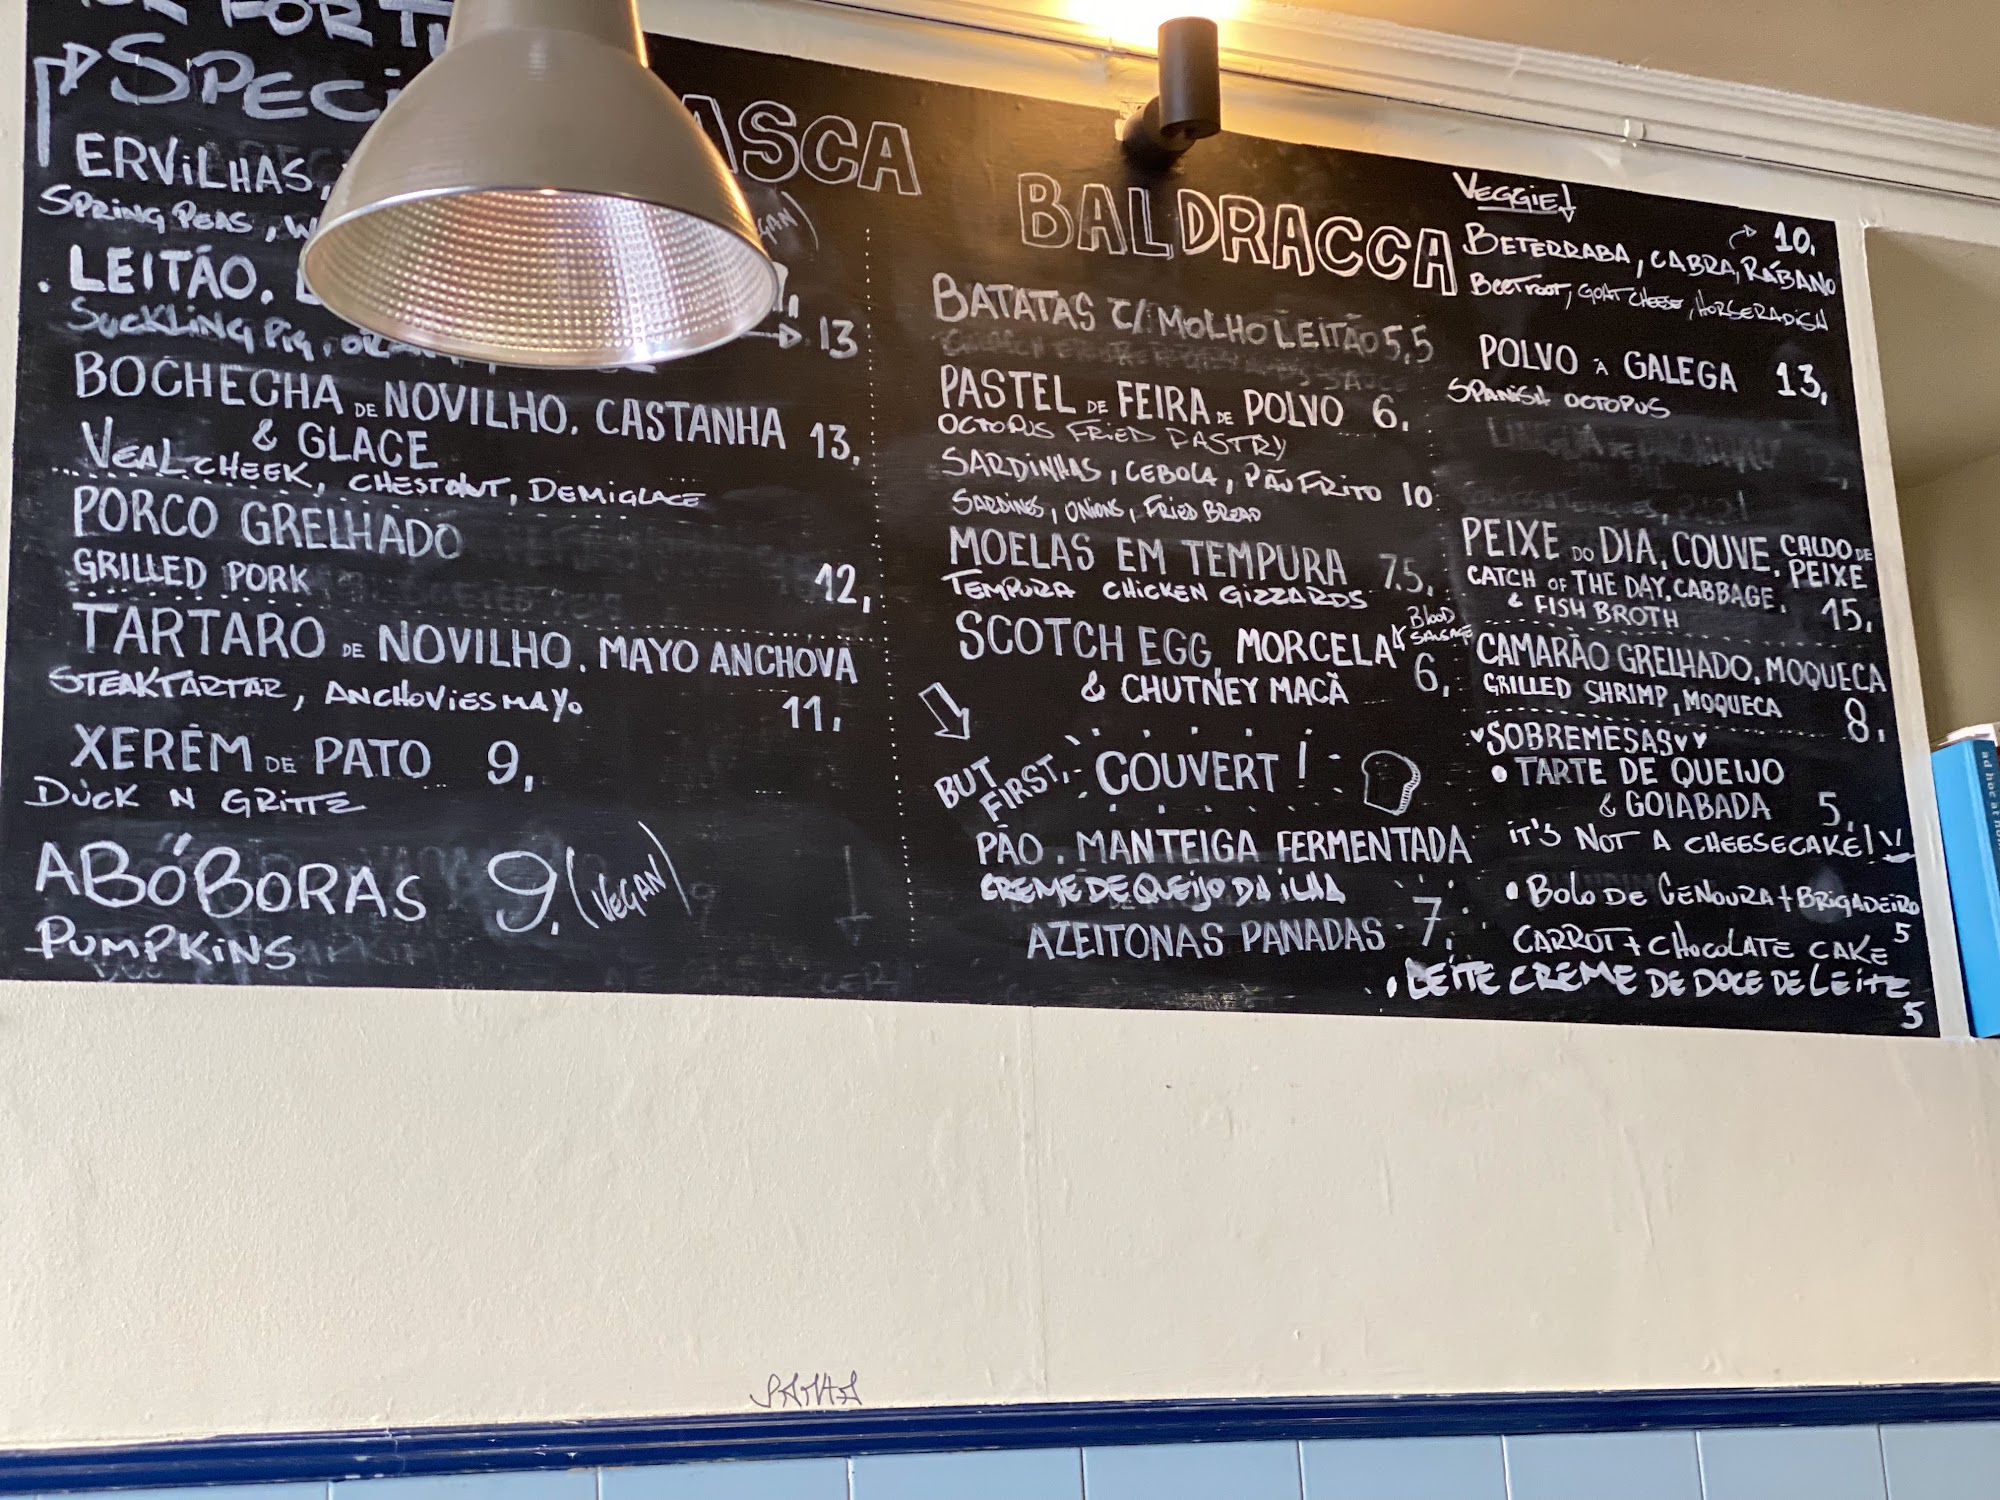 FOR
SPECI
ERVILHAS,
SPRING PEAS, W
LEITÃO.
SUCKLING PIG,
13
BOCHECHA DE NOVILHO. CASTANHA
& GLACE 13,
VEAL CHEEK, CHESTNUT, DEMIGLACE
PORCO GRELHADO
GRILLED PORK 12,
TARTARO DE NOVILHO. MAYO ANCHOVA
STEAKTARTAR, ANCHOVIES MAYO 11,
XERÉM DE PATO 9,
DUCK N GRITTZ
ABÓBORAS 9. (VEGAN)
PUMPKINS
ASCA
BALDRACCA
BATATAS C/ MOLHO LEITÃO 5,5
PASTEL DE FEIRA DE POLVO 6.
OCTOPUS FRIED PASTRY
SARDINHAS, CEBOLA, PÃO FRITO 10
SARDINES, ONIONS, FRIED BREAD
MOELAS EM TEMPURA 7.5,
TEMPURA CHICKEN GIZZARDS
SCOTCH EGG, MORCELA BLOOD SAUSAGE
& CHUTNEY MACÃ 6,
BUT FIRST,
COUVERT!
PÃO. MANTEIGA FERMENTADA
CREME DE QUEIJO DA ILHA
AZEITONAS PANADAS 7,
VEGGIE!
10,
BETERRABA, CABRA, RÁBANO
BEETROOT, GOAT CHEESE, HORSERADISH
POLVO À GALEGA 13,
SPANISH OCTOPUS
PEIXE DO DIA, COUVE, CALDO DE PEIXE
CATCH OF THE DAY, CABBAGE,
& FISH BROTH 15,
CAMARÃO GRELHADO, MOQUECA
GRILLED SHRIMP, MOQUECA 8,
SOBREMESAS
• TARTE DE QUEIJO
& GOIABADA 5,
IT'S NOT A CHEESECAKE!
• BOLO DE CENOURA + BRIGADEIRO
5
CARROT + CHOCOLATE CAKE
• LEITE CREME DE DOCE DE LEITE
5